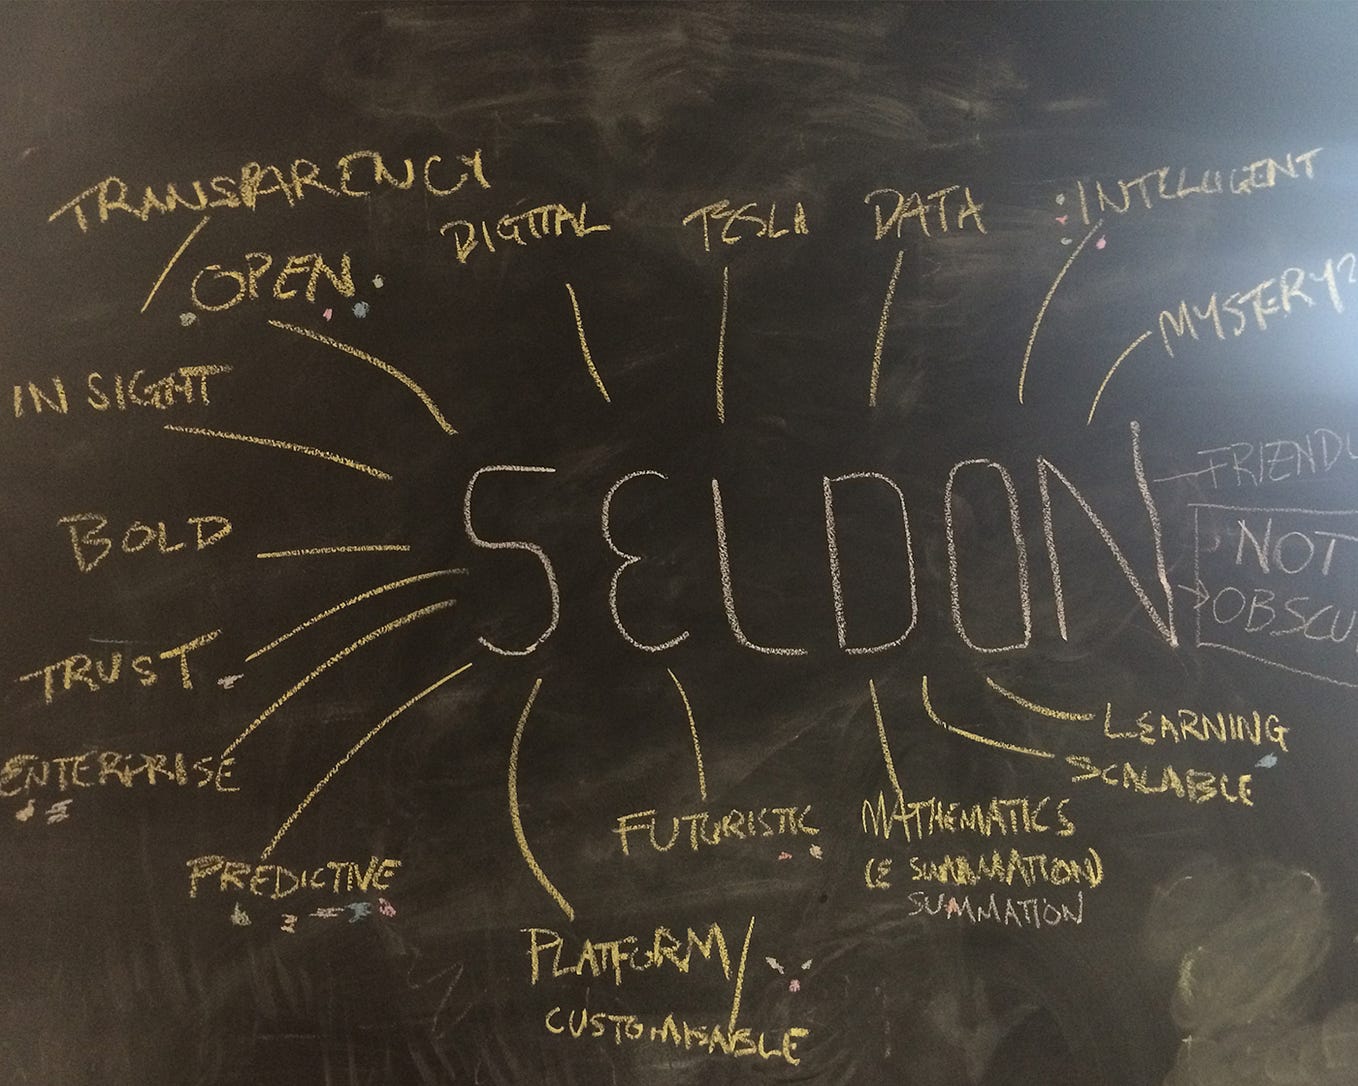 TRANSPARENCY
OPEN
DIGITAL
TESLA
DATA
INTELLIGENT
MYSTERY?
INSIGHT
BOLD
TRUST
ENTERPRISE
PREDICTIVE
SELDON
FRIENDL
NOT
OBSCU
LEARNING
SCALABLE
FUTURISTIC
MATHEMATICS
(E SUMMATION)
SUMMATION
PLATFORM/
CUSTOMISABLE